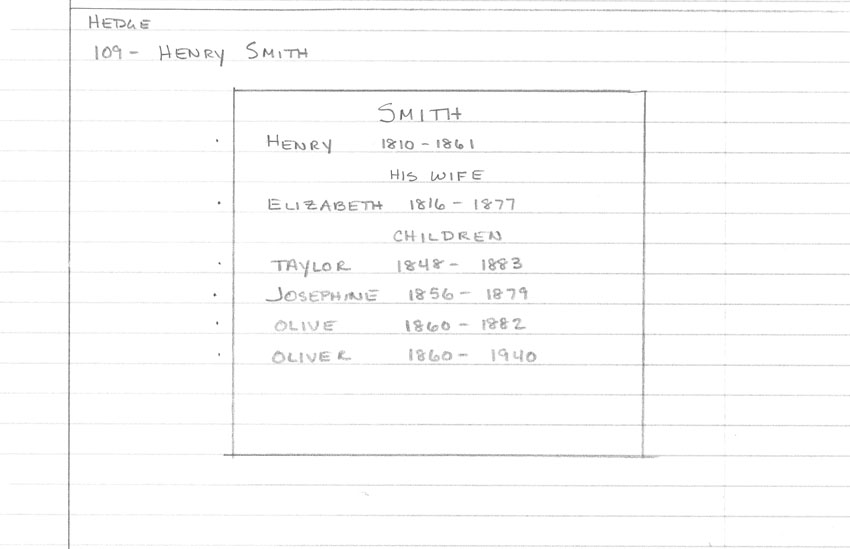 HEDGE
109- HENRY SMITH
SMITH
HENRY 1810-1861
HIS WIFE
ELIZABETH 1816-1877
CHILDREN
TAYLOR 1848- 1883
JOSEPHINE 1856- 1879
OLIVE 1860-1882
OLIVER 1860- 1940